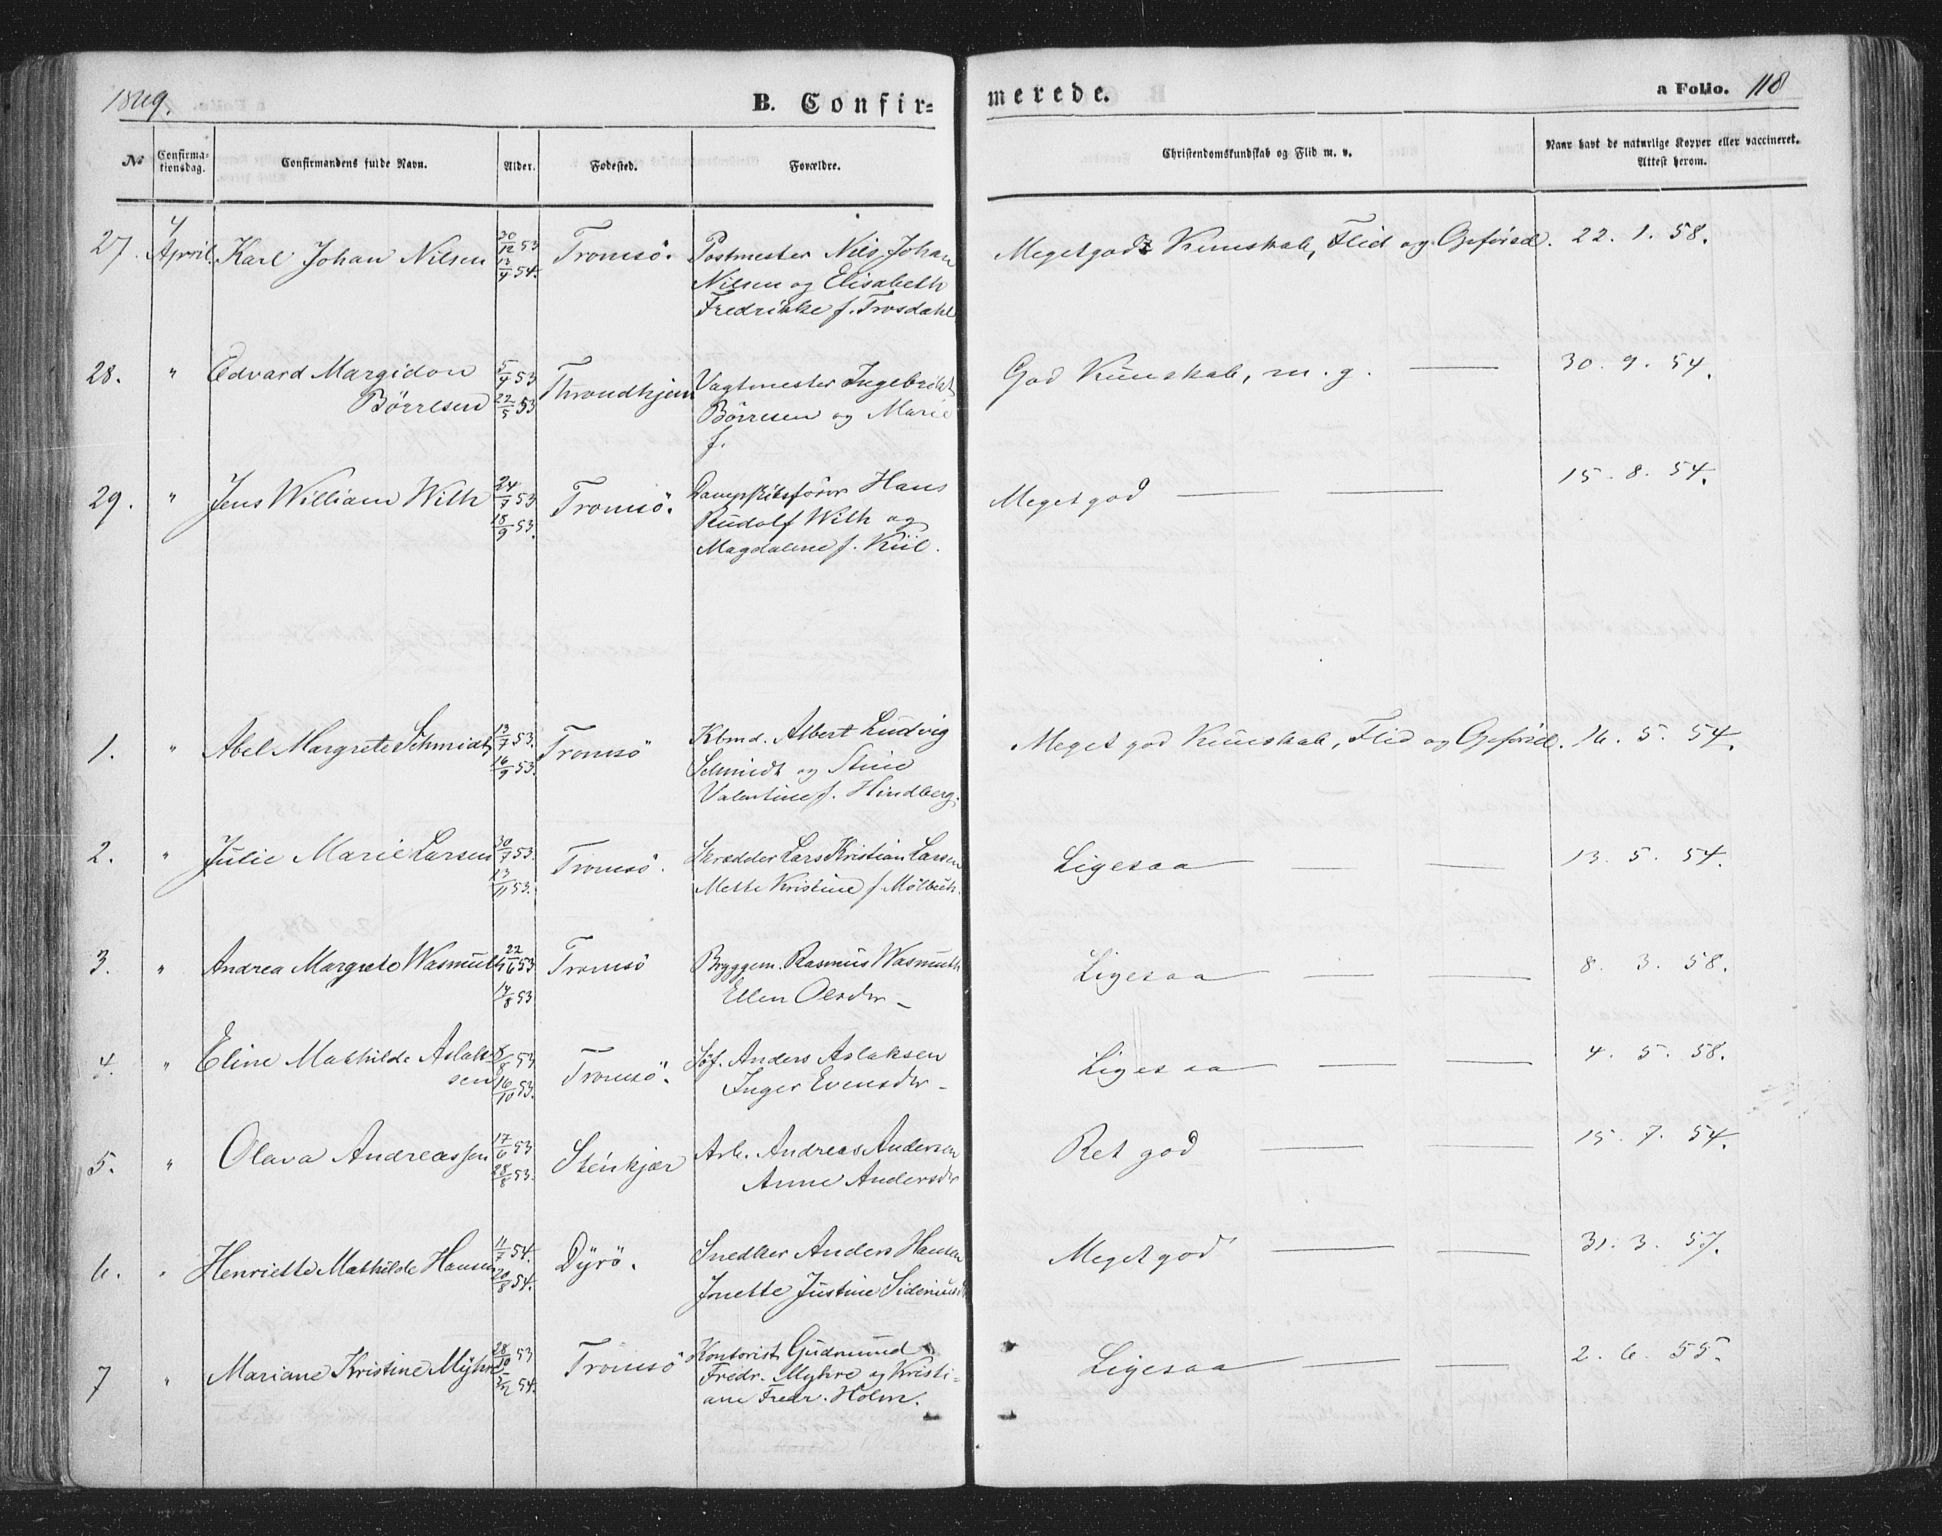 1869.
B. Confir=
merede.
a Folio. 118
No
Confirma-
tionsdag.
Confirmandens fulde Navn.
Alder.
Fødested.
Forældre.
Christendomskundskab og Flid m. v.
Naar havt de naturlige Kopper eller vaccineret.
Attest herom.
27. 4 April. Karl Johan Nilsen 30/12 53 Tromsö. Postmester Nils Johan Megetgod Kundskab, Flid og Opførsel. 22. 1. 58.
54. Nilsen og Elisabeth
Fredrikke f. Trosdahl
28. " Edvard Margidon 5/4 53 Throndhjem Vagtmester Ingebrikt God Kundskab, m. g. — 30. 9. 54.
Börresen 22/5 53 Börresen og Marie
f.
29. " Jens William With 24/7 53 Tromsö. Dampskibsfører Hans Meget god — — 15. 8. 54.
18/9 53. Rudolf With og
Magdalene f. Kiil.
1. " Abel Margrete Schmidt 13/7 53. Tromsö Kbmd. Albert Ludvig Meget god Kundskab, Flid og Opførsel. 16. 5. 54.
16/9 53. Schmidt og Stine
Valentine f. Hindberg.
2. " Julie Marie Larsen 30/7 53. Tromsö. Skrædder Lars Kristian Larsen Ligesaa — — 13. 5. 54.
13/11 53. Mette Kristine f. Mölbach.
3. " Andrea Margrete Wasmuth 22/6 53 Tromsö Byggem. Rasmus Wasmuth Ligesaa — — 8. 3. 58.
14/8 53 Ellen Olsdtr —
4. " Eline Mathilde Aslak- 8/8 53 Tromsö. Söf. Anders Aslaksen Ligesaa — — 4. 5. 58.
sen 16/10 53. Inger Evensdtr —
5. " Olava Andreassen 17/6 53 Stenkjær Arb. Andreas Andersen Ret god — — 15. 7. 54.
28/8 53. Anne Andersdtr
6. " Henriette Mathilde Hansen 11/7 54. Dyrö. Snedker Anders Hansen Meget god — — 31. 3. 57.
20/8 54. Jonette Justine
7 " Mariane Kristine Myhre 28/10 53 Tromsö Kontorist Gudmund Ligesaa — — 2. 6. 55.
54. Fredr. Myhre og Kristi-
ane Fredr. Holm.